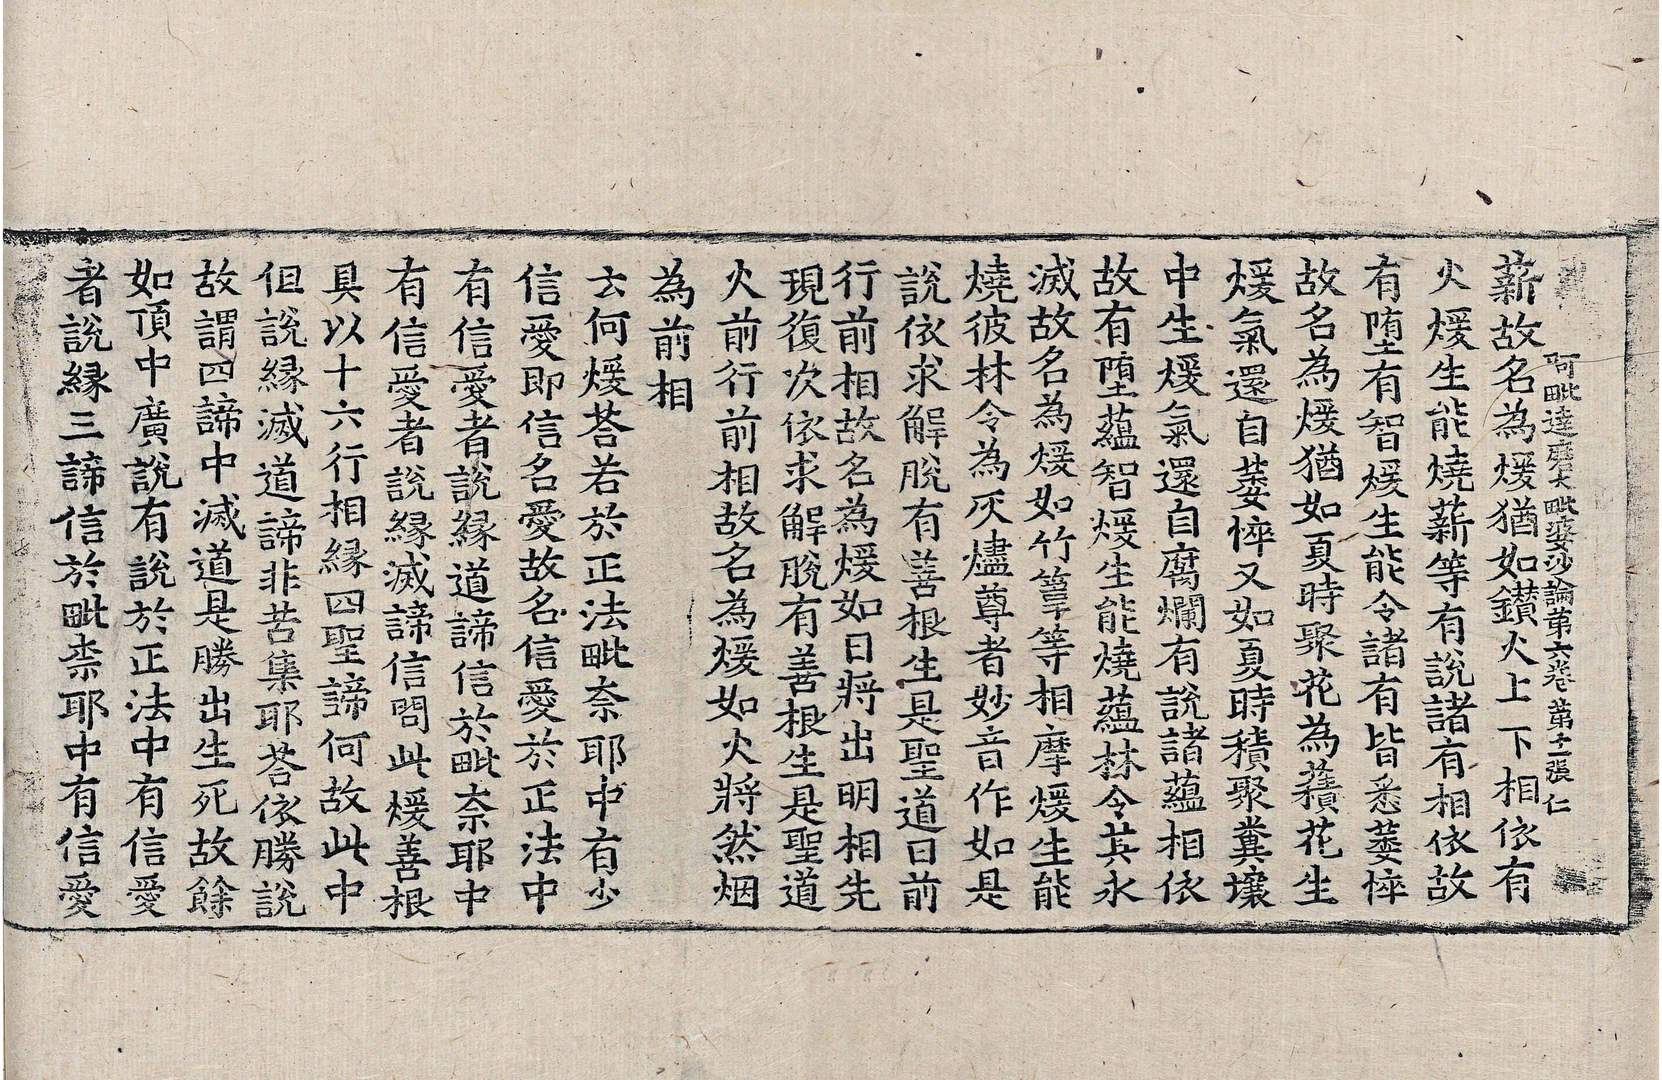 阿毗達磨大毗婆沙論第六卷 第十二張 仁
薪故名為煖猶如鑽火上下相依有
火煖生能燒薪等有說諸有相依故
有堕有智煖生能令諸有皆悉萎悴
故名為煖猶如夏時聚花為𧂐花生
煖氣還自萎悴又如夏時積聚糞壤
中生煖氣還自腐爛有說諸蘊相依
故有堕蘊智煖生能燒蘊林令其永
滅故名為煖如竹篿等相摩煖生能
燒彼林令為灰燼尊者妙音作如是
說依求解脫有善根生是聖道日前
行前相故名為煖如日將出明相先
現復次依求解脫有善根生是聖道
火前行前相故名為煖如火將然烟
為前相
云何煖荅若於正法毗奈耶中有少
信愛即信名愛故名信愛於正法中
有信愛者說緣道諦信於毗奈耶中
有信愛者說緣滅諦信問此煖善根
具以十六行相緣四聖諦何故此中
但說緣滅道諦非苦集耶荅依勝說
故謂四諦中滅道是勝出生死故餘
如頂中廣說有說於正法中有信愛
者說緣三諦信於毗柰耶中有信愛